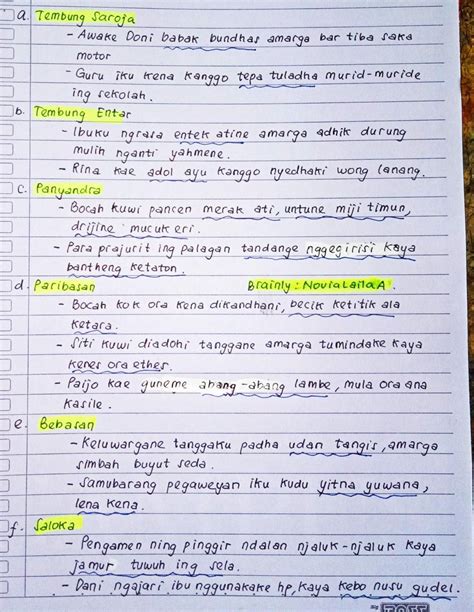 a. Tembung Saroja
- Awake Doni babak bundhas amarga bar tiba saka
motor
- Guru iku kena kanggo tepa tuladha murid-muride
ing sekolah.
b. Tembung Entar
- Ibuku ngrasa entek atine amarga adhik durung
mulih nganti yahmene.
- Rina kae adol ayu kanggo nyedhaki wong lanang.
c. Panyandra
- Bocah kuwi pancen merak ati, untune miji timun,
drijine mucuk eri.
- Para prajurit ing palagan tandange nggegirisi kaya
bantheng ketaton.
d. Paribasan Brainly : NoviaLailaA.
- Bocah kok ora kena dikandhani, becik ketitik ala
ketara.
- Siti kuwi diadohi tanggane amarga tumindake kaya
kener ora ether.
- Paijo kae guneme abang-abang lambe, mula ora ana
kasile.
e. Bebasan
- Keluwargane tanggaku padha udan tangis, amarga
simbah buyut seda.
- Samubarang pegaweyan iku kudu yitna yuwana,
lena kena.
f. Saloka
- Pengamen ning pinggir ndalan njaluk-njaluk kaya
jamur tuwuh ing sela.
- Dani ngajari ibu nggunakake hp, kaya kebo nusu gudel.